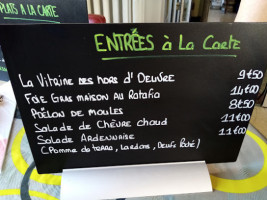 PLATS A LA CARTE
ENTRÉES à La Carte
La Vitrine des hors d'Oeuvre 9€50
Foie Gras maison au Ratafia 14€00
Poêlon de moules 8€50
Salade de Chèvre chaud 11€00
Salade Ardennaise 11€00
(Pomme de terre, Lardons, Oeufs Poché)